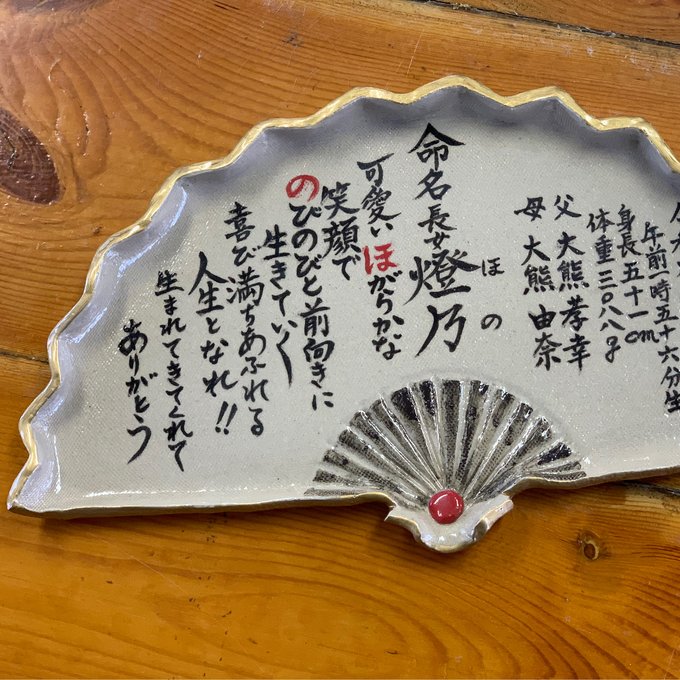 午前一時五十六分生
身長五十一cm
体重三〇八八g
父 大熊孝幸
母 大熊由奈
命名 長女 燈乃
ほの
可愛いほがらかな
笑顔で
のびのびと前向きに
生きていく
喜び満ちあふれる
人生となれ!!
生まれてきてくれて
ありがとう